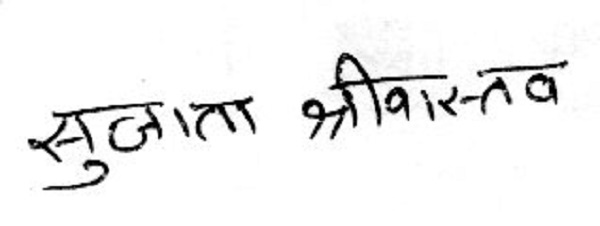 सुजाता श्रीवास्तव